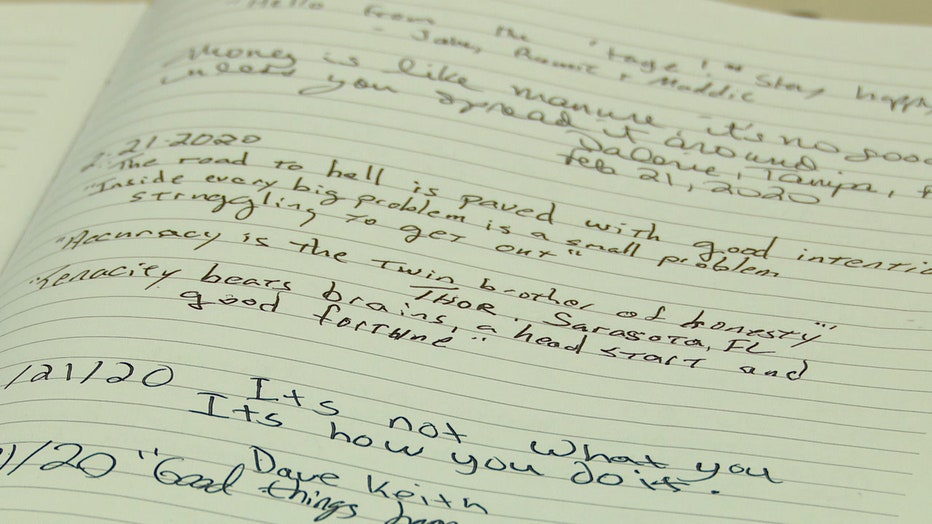 "Hello from the "
- Jake, Ronnie + Maddie
Stay happy
Money is like manure it's no good
unless you spread it around
Tampa, F
Feb 21, 2020
2.21.2020
"The road to hell is paved with good intentio
"Inside every big problem is a small problem
struggling to get out"
"Accuracy is the Twin brother of honesty"
THOR, Sarasota, FL
"Tenacity bears brains, a head start and
good fortune".
/21/20 Its not what you
Its how you do it.
Dave Keith
1/20 "Good things hap